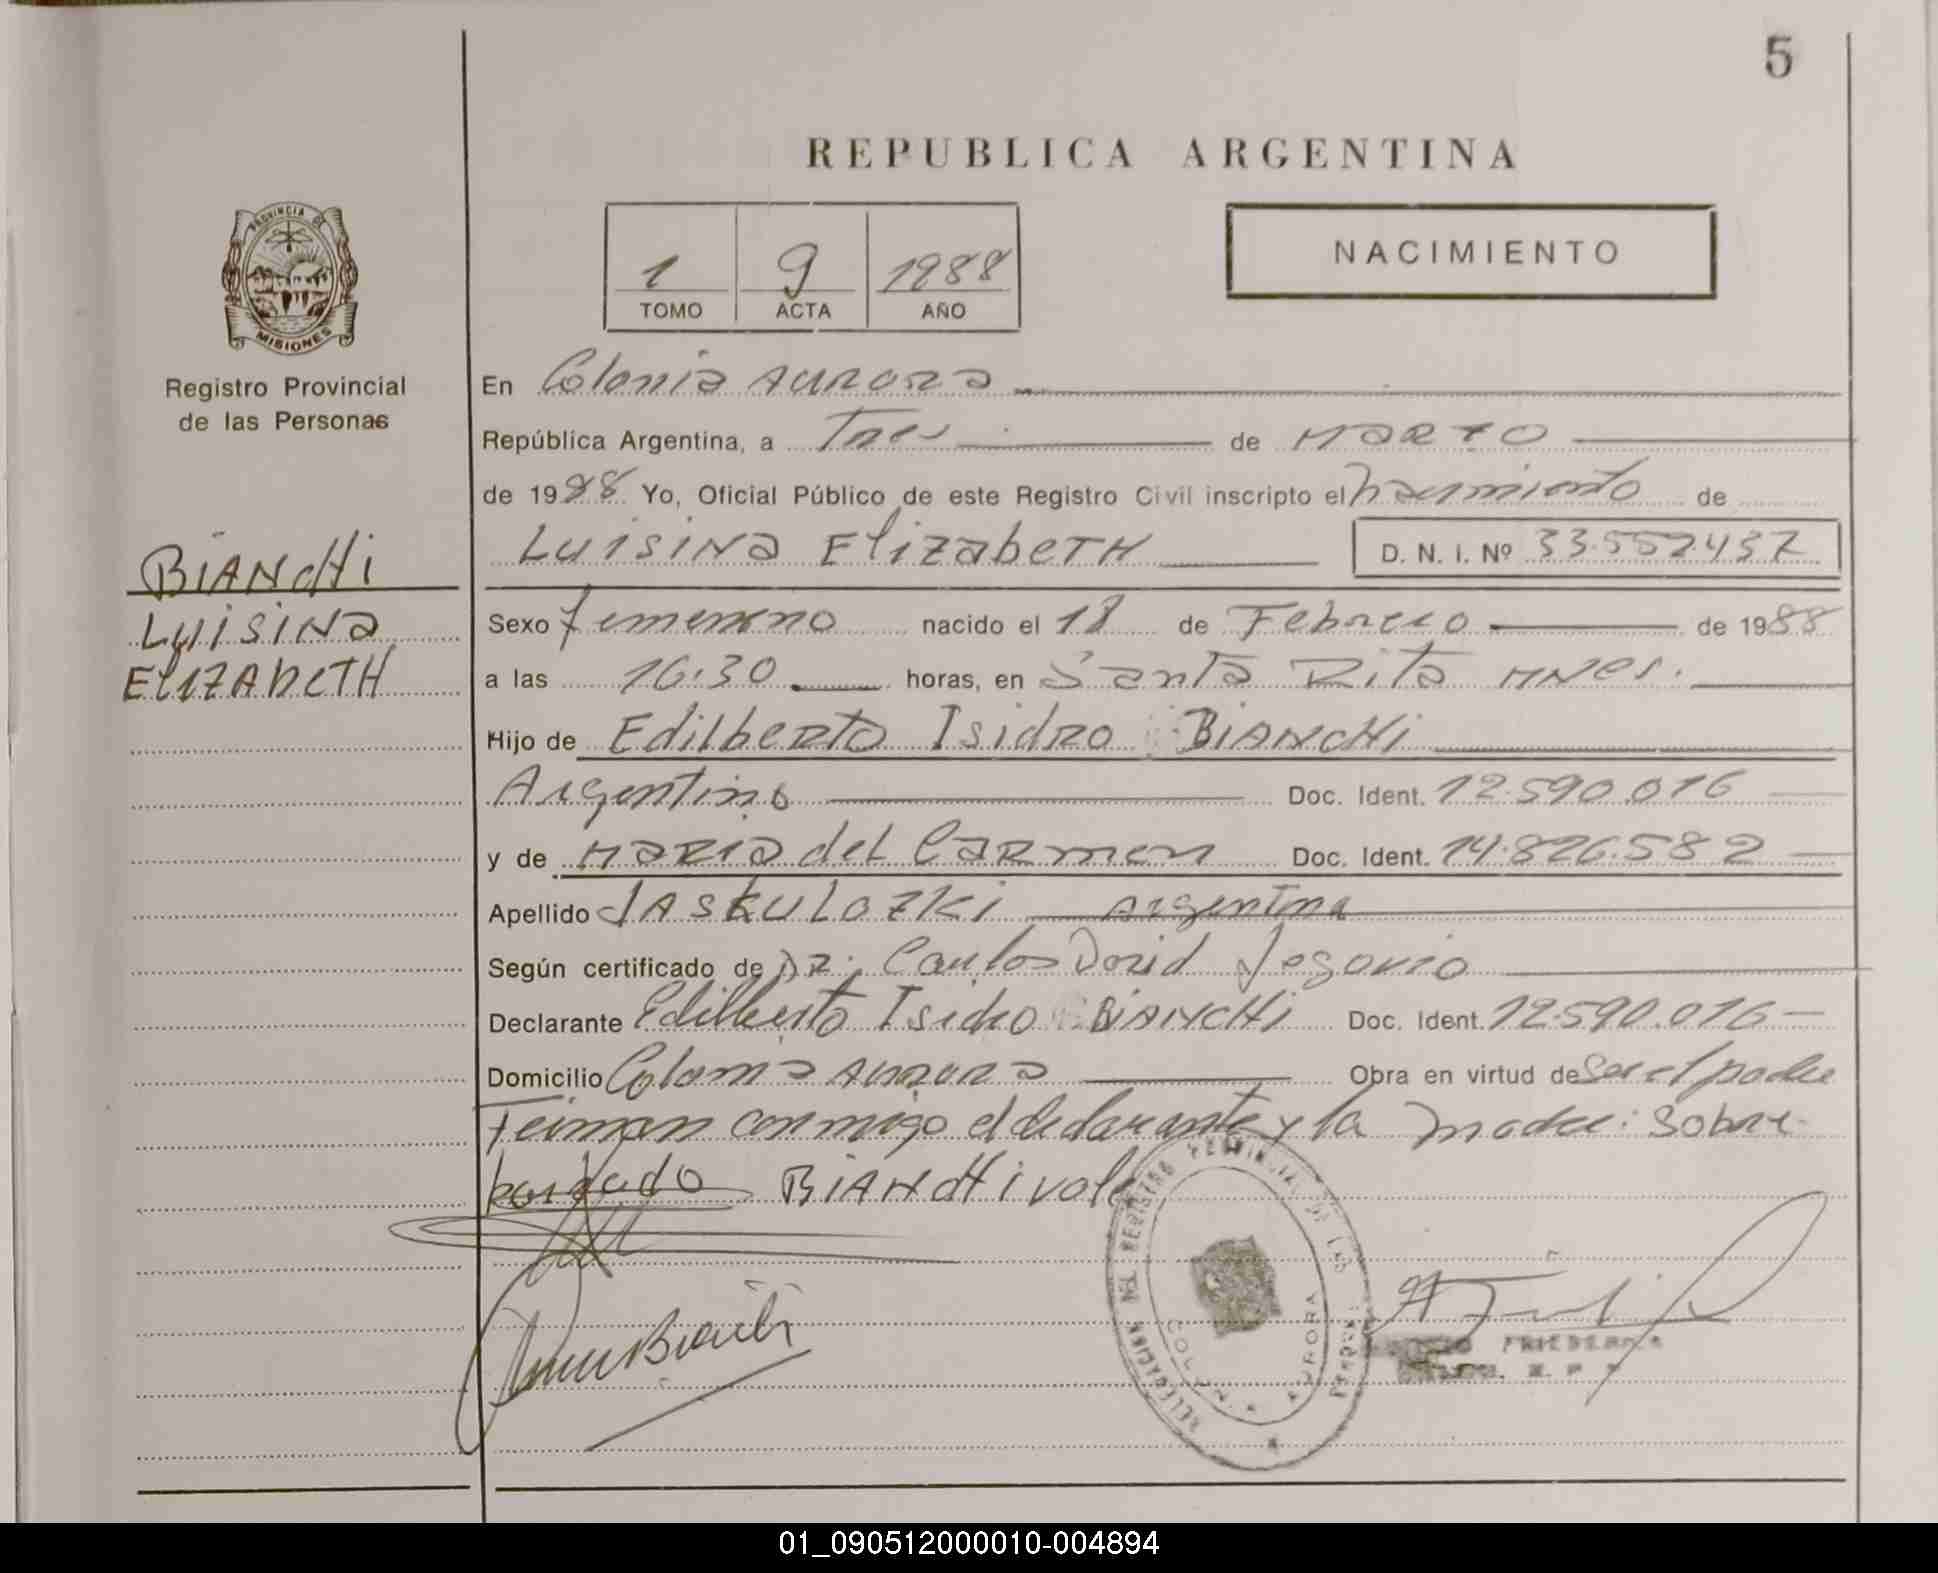 5
REPUBLICA ARGENTINA
PROVINCIA DE
MISIONES
Registro Provincial
de las Personas
1 9 1988
TOMO ACTA AÑO
NACIMIENTO
En Colonia Aurora
República Argentina, a Tres de Marzo
de 1988 Yo, Oficial Público de este Registro Civil inscripto el nacimiento de
Luisina Elizabeth D. N. I. Nº 33.552437
BIANCHI
LUISINA
ELIZABETH
Sexo femenino nacido el 18 de Febrero de 1988
a las 16:30 horas, en Santa Rita Mnes.
Hijo de Edilberto Isidro BIANCHI
Argentino Doc. Ident. 12.590.016
y de Maria del Carmen Doc. Ident. 14.826.582
Apellido JASKULOZKI Argentina
Según certificado de Dr. Carlos David Segovia
Declarante Edilberto Isidro BIANCHI Doc. Ident. 12.590.016
Domicilio Colonia Aurora Obra en virtud de ser el padre
Feiman conmigo el declarante y la madre: sobre
bordado BIANCHI vale
DELEGACION DEL REGISTRO PROVINCIAL DE LAS PERSONAS
COLONIA AURORA
01_090512000010-004894